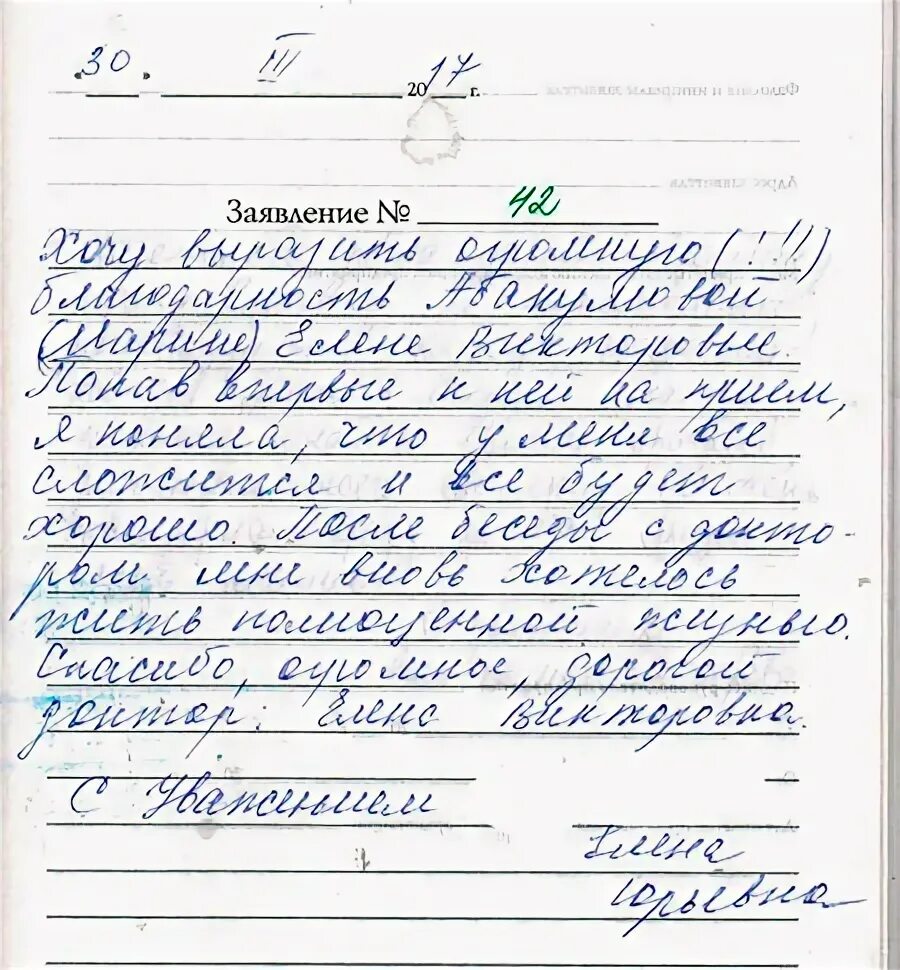 «30» III 2017 г.
Заявление № 42
Хочу выразить огромную (!!!)
благодарность Абакумовой
(Марине) Елене Викторовне.
Попав впервые к ней на прием,
я поняла, что у меня все
сложится и все будет
хорошо. После беседы с докто-
ром мне вновь хотелось
жить полноценной жизнью.
Спасибо, огромное, дорогой
доктор: Елена Викторовна.
С Уважением
Елена
Юрьевна